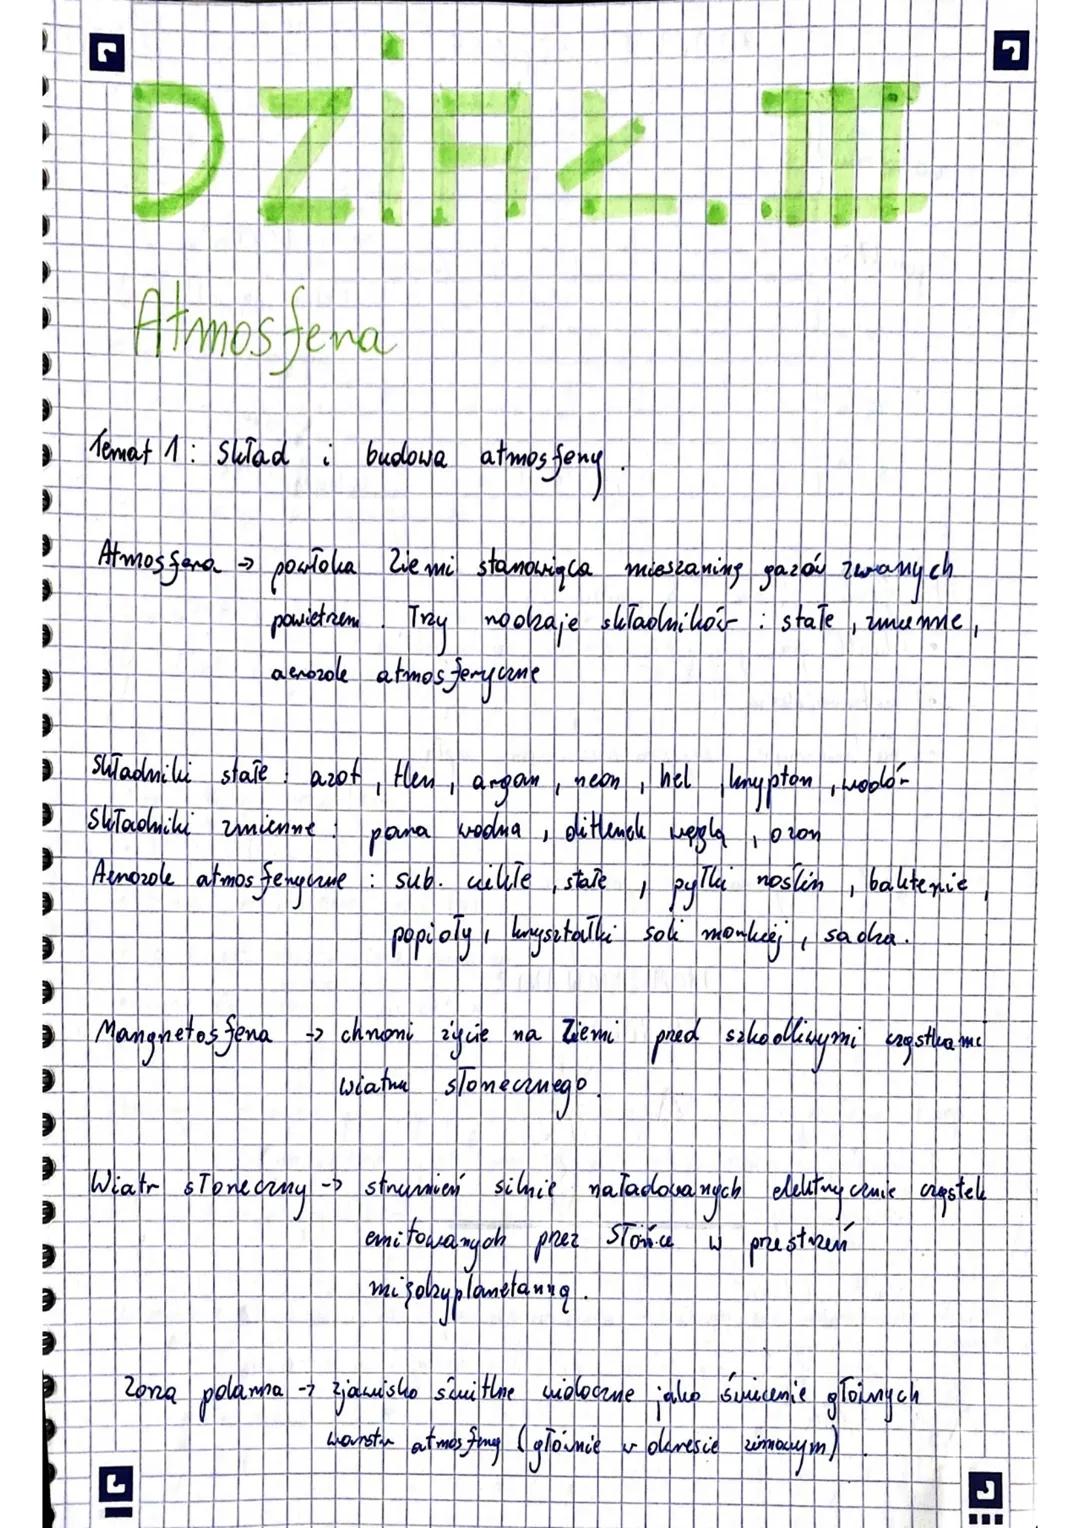 DZiAŁ. III
Atmosfera
Temat 1: Skład i budowa atmosfery.
Atmosfera → powłoka Ziemi stanowiąca mieszaninę gazów zwanych
powietrzem. Trzy rodzaje składników: stałe, zmienne,
aerozole atmosferyczne
Składniki stałe: azot, tlen, argon, neon, hel, krypton, wodór
Składniki zmienne: para wodna, ditlenek węgla, ozon
Aerozole atmosferyczne: sub. ciekłe, stałe, pyłki roślin, bakterie,
popioły, kryształki soli morskiej, sadza.
Mangnetosfera → chroni życie na Ziemi przed szkodliwymi cząstkami
wiatru słonecznego.
Wiatr słoneczny → strumień silnie naładowanych elektrycznie cząstek
emitowanych przez Słońce w przestrzeń
międzyplanetarną.
Zorza polarna → zjawisko świetlne widoczne jako świecenie górnych
warstw atmosfery (głównie w okresie zimowym).